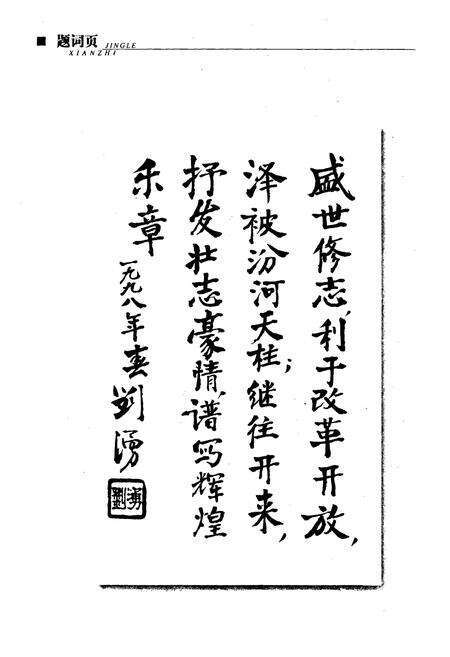 题词页
JINGLE
XIANZHI
盛世修志，利于改革开放，
泽被汾河天柱；继往开来，
抒发壮志豪情，谱写辉煌
乐章
一九九八年春 劉湧
劉湧